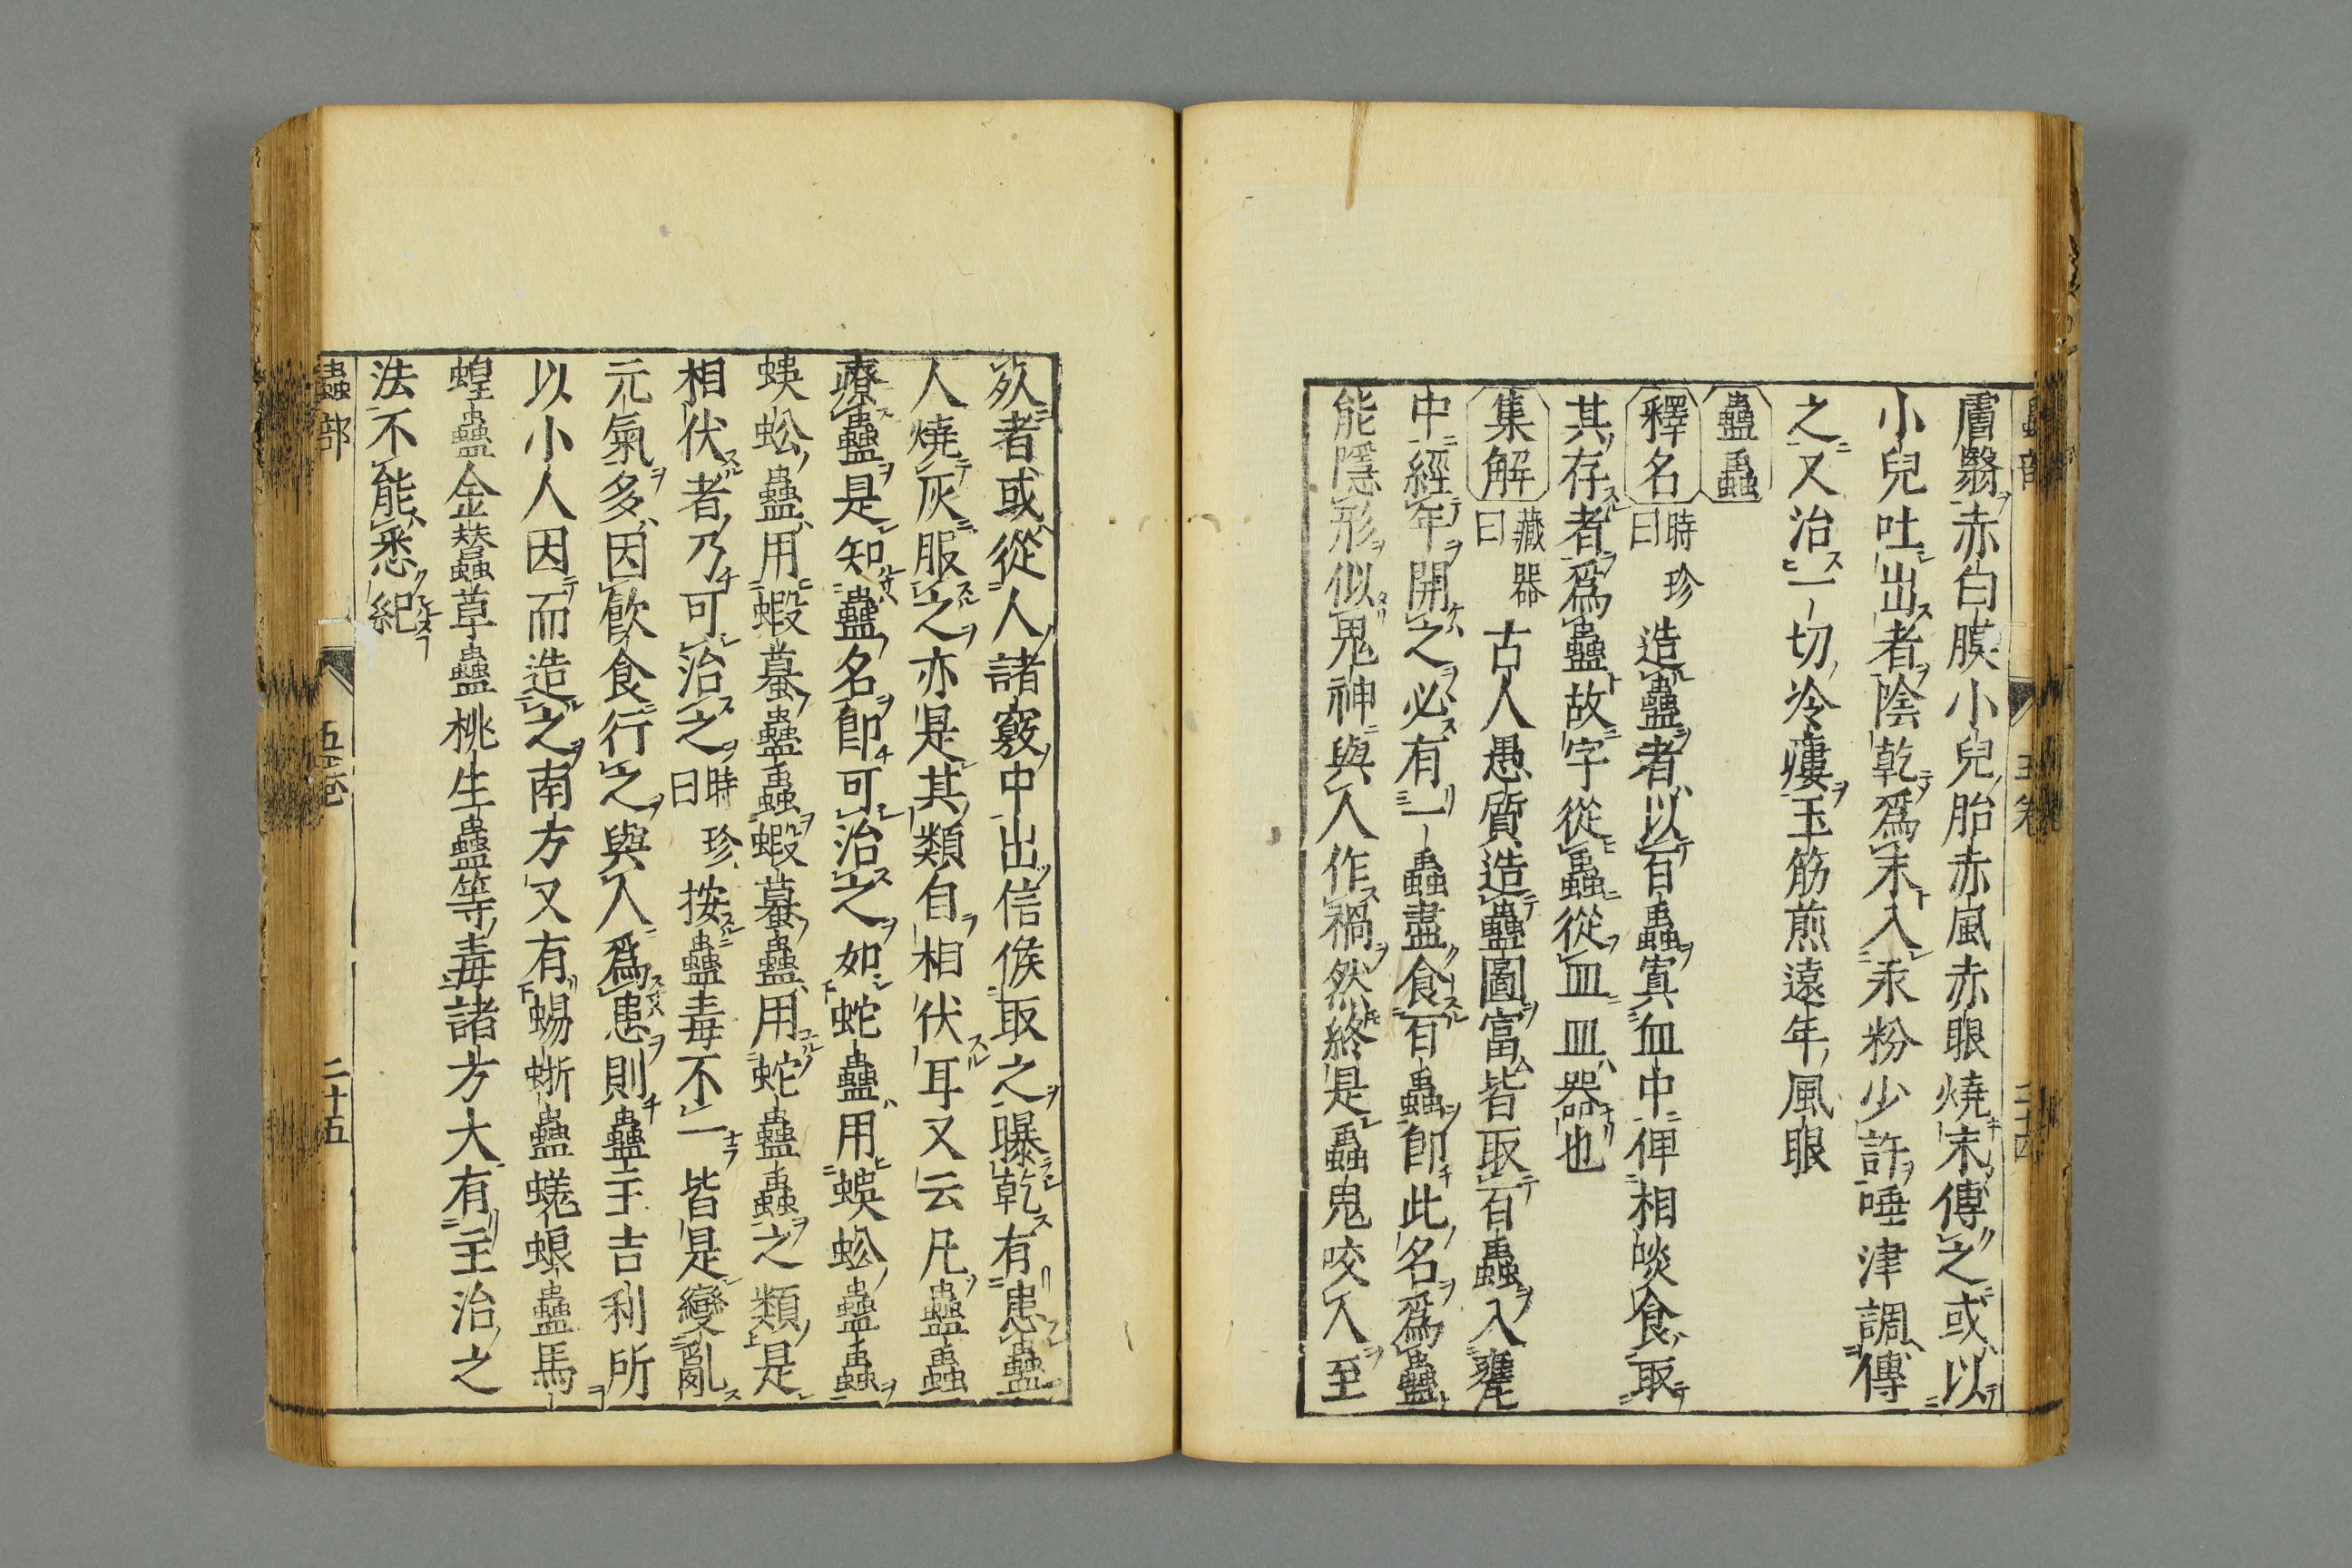 膚翳赤白膜小兒胎赤風赤眼燒末傅之或以
小兒吐出者陰乾爲末入汞粉少許唾津調傅
之又治一切冷瘻玉筋煎遠年風眼
蠱蟲
釋名時珍曰造蠱者以百蟲寘血中俾相啖食取
其存者爲蠱故字從蟲從皿皿器也
集解藏器曰古人愚質造蠱圖富皆取百蟲入甕
中經年開之必有一蟲盡食百蟲卽此名爲蠱
能隱形似鬼神與人作禍然終是蟲鬼咬人至
死者或從人諸竅中出信候取之曝乾有患蠱
人燒灰服之亦是其類自相伏耳又云凡蠱蟲
療蠱是知蠱名卽可治之如蛇蠱用蜈蚣蠱蟲
蜈蚣蠱用蝦蟇蠱蟲蝦蟇蠱用蛇蠱蟲之類是
相伏者乃可治之時珍曰按蠱毒不一皆是變亂
元氣多因飮食行之與人爲患則蠱主吉利所
以小人因而造之南方又有蜴蜥蠱蜣蜋蠱馬
蝗蠱金蠶草蠱桃生蠱等毒諸方大有主治之
法不能悉紀
蟲部 五卷 二十五